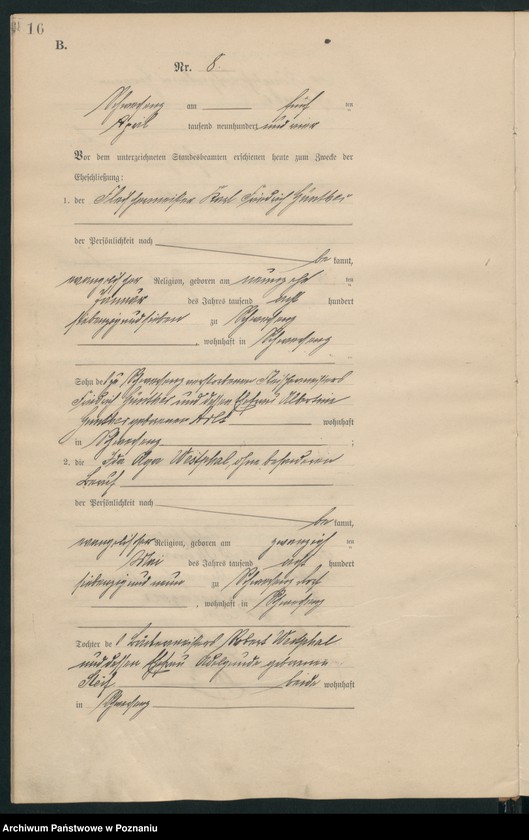 16
B.
Nr. 8
Schwersenz am fünf ten
April tausend neunhundert und vier
Vor dem unterzeichneten Standesbeamten erschienen heute zum Zwecke der
Eheschließung:
1. der Fleischermeister Karl Friedrich Günther
der Persönlichkeit nach
be kannt,
evangelischer Religion, geboren am neunzehn ten
Januar des Jahres tausend acht hundert
siebenzig und sieben zu Schwersenz
, wohnhaft in Schwersenz
Sohn des zu Schwersenz verstorbenen Fleischermeisters
Friedrich Günther und dessen Ehefrau Albertine
Günther geborenen wohnhaft
in Schwersenz ;
2. die Ida Olga Westphal, ohne besonderen
Beruf
der Persönlichkeit nach
be kannt,
evangelischer Religion, geboren am zwanzigsten
Mai des Jahres tausend acht hundert
siebenzig und neun zu Schwersenz
, wohnhaft in Schwersenz
Tochter des Robert Westphal
und dessen Ehefrau Adelgunde geborene
beide wohnhaft
in Schwersenz
Archiwum Państwowe w Poznaniu